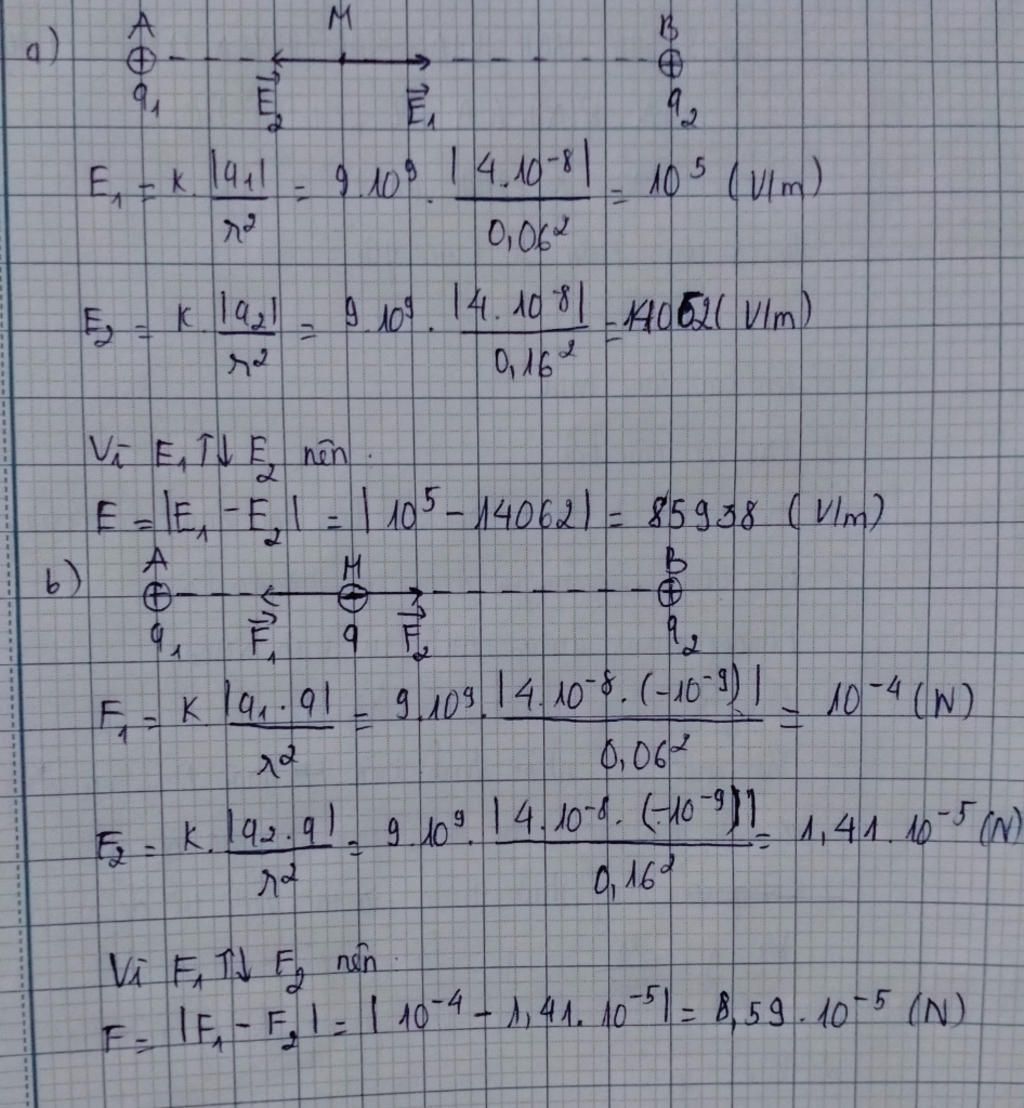 a) A M B
q₁ E₂⃗ E₁⃗ q₂
E₁ = k. |q₁|/r² = 9.10⁹ . |4.10⁻⁸|/0,06² = 10⁵ (V/m)
E₂ = k. |q₂|/r² = 9.10⁹ . |4.10⁻⁸|/0,16² = 14062 (V/m)
Vì E₁ ↑↓ E₂ nên
E = |E₁ - E₂| = |10⁵ - 14062| = 85938 (V/m)
b) A M B
q₁ F₁⃗ q F₂⃗ q₂
F₁ = k |q₁.q|/r² = 9.10⁹. |4.10⁻⁸.(-10⁻⁹)|/0,06² = 10⁻⁴ (N)
F₂ = k. |q₂.q|/r² = 9.10⁹. |4.10⁻⁸.(-10⁻⁹)|/0,16² = 1,41.10⁻⁵ (N)
Vì F₁ ↑↓ F₂ nên
F = |F₁ - F₂| = |10⁻⁴ - 1,41.10⁻⁵| = 8,59.10⁻⁵ (N)